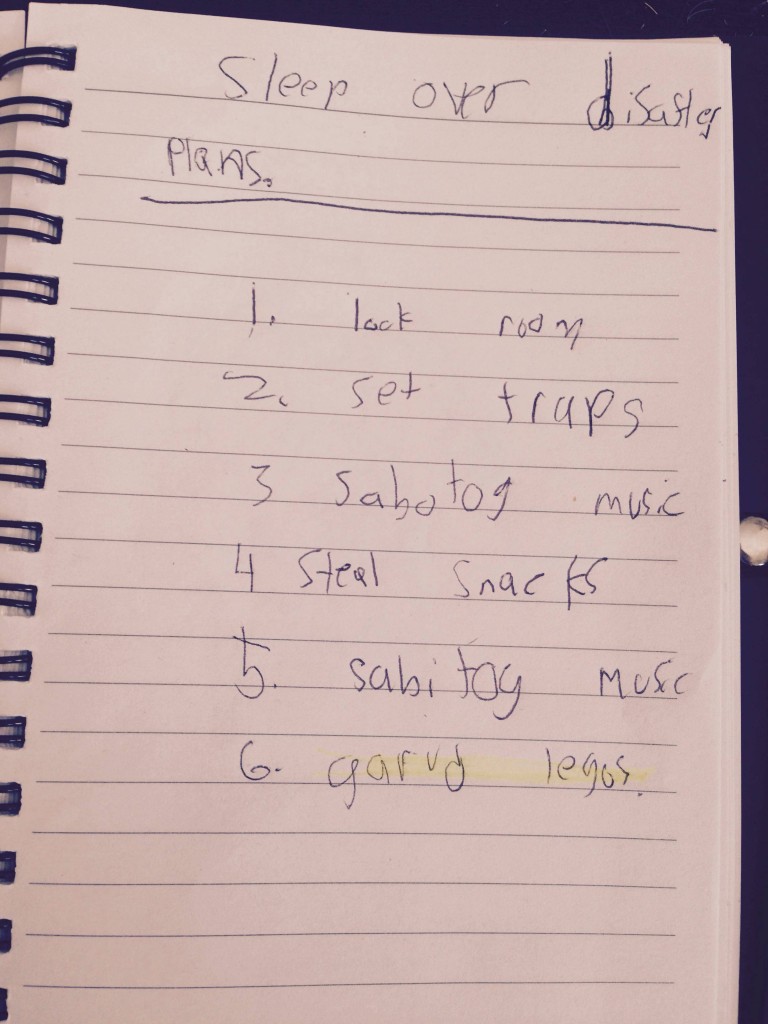 Sleep over disaster
Plans.
1. lock room
2. set traps
3 Sabotog music
4 Steal Snacks
5. sabitog music
6. garud legos.